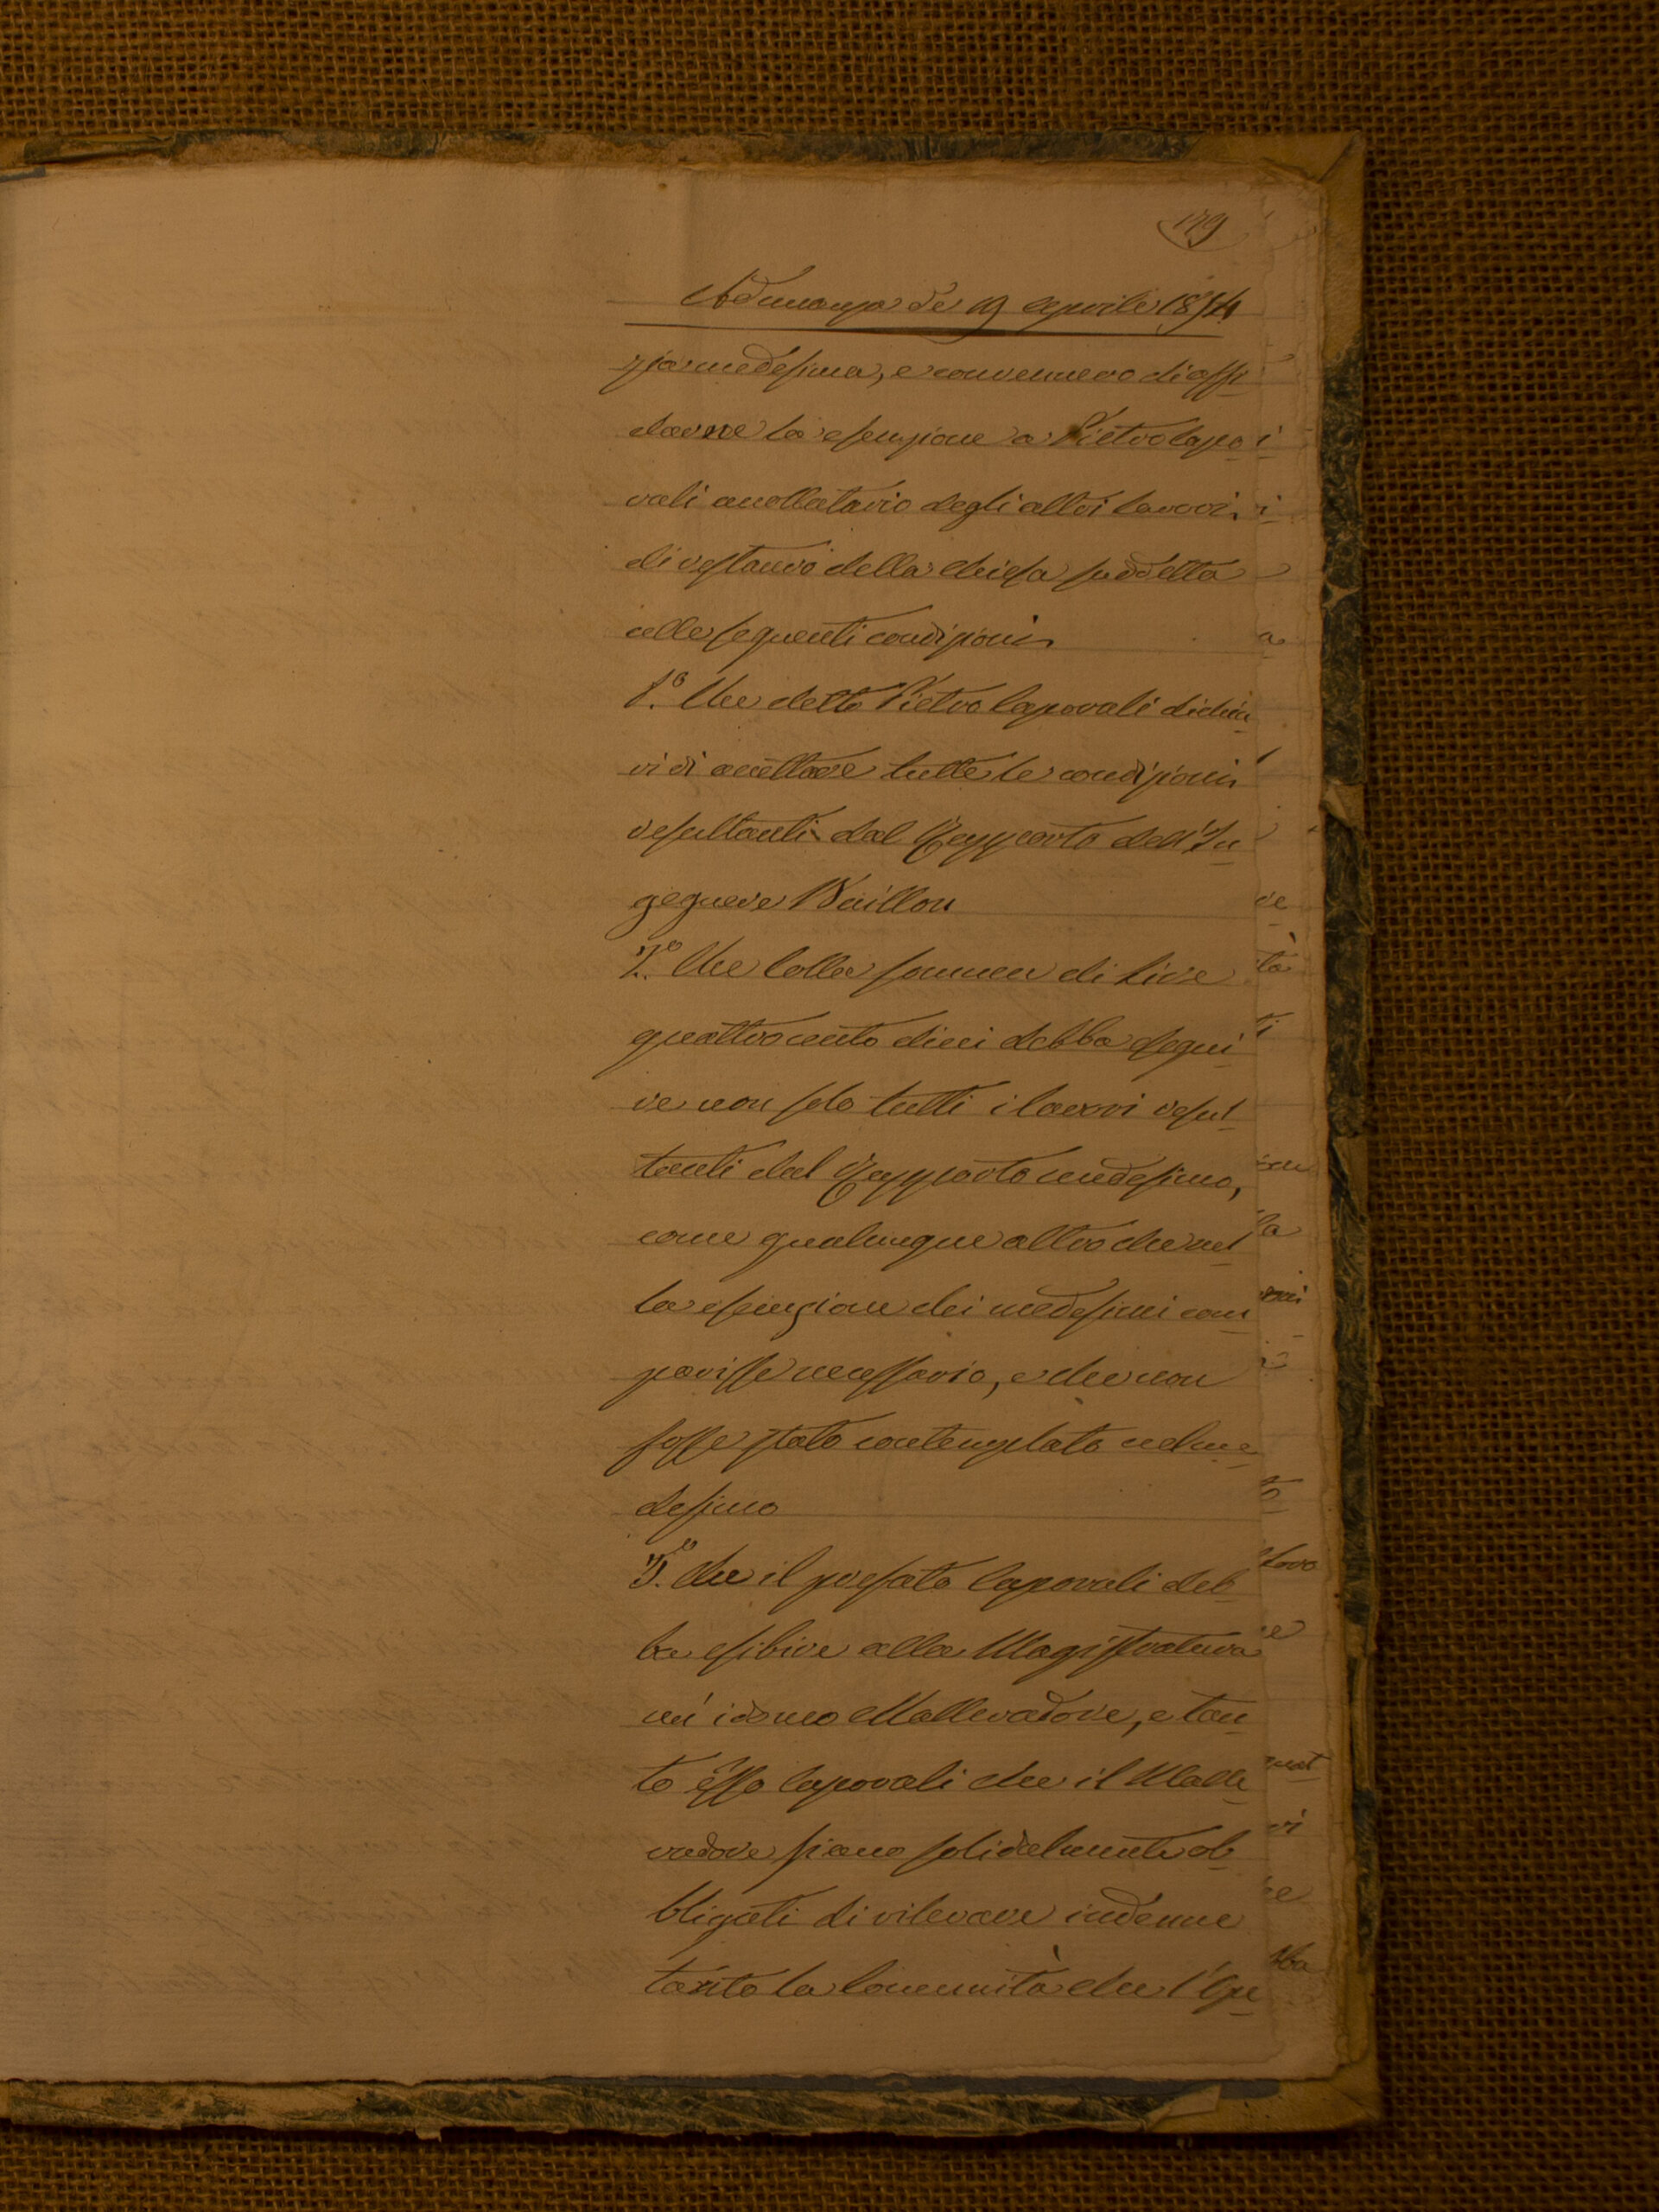 179
Adunanza de 19 Aprile 1854
zia medesima, e convennero di affi
darne la esenzione a Pietro Capo
rali accollatario degli altri lavori,
di restauro della chiesa suddetta
alle seguenti condizioni
1.º Che detto Pietro Caporali dichia
ri di accettare tutte le condizioni
resultanti dal Rapporto dell'In
gegnere Baillou
2.º Che colla somma di Lire
quattrocento dieci debba esegui
re non solo tutti i lavori resul
tanti dal Rapporto medesimo,
come qualunque altro che nel
la esecuzione dei medesimi com
parisse necessario, e che non
fosse stato contemplato nel me
desimo
3.º Che il prefato Caporali deb
ba esibire alla Magistratura
un' idoneo Mallevadore, e tan
to esso Caporali che il Malle
vadore siano solidalmente ob
bligati di rilevare indenne
tanto la Comunità che l'Ope